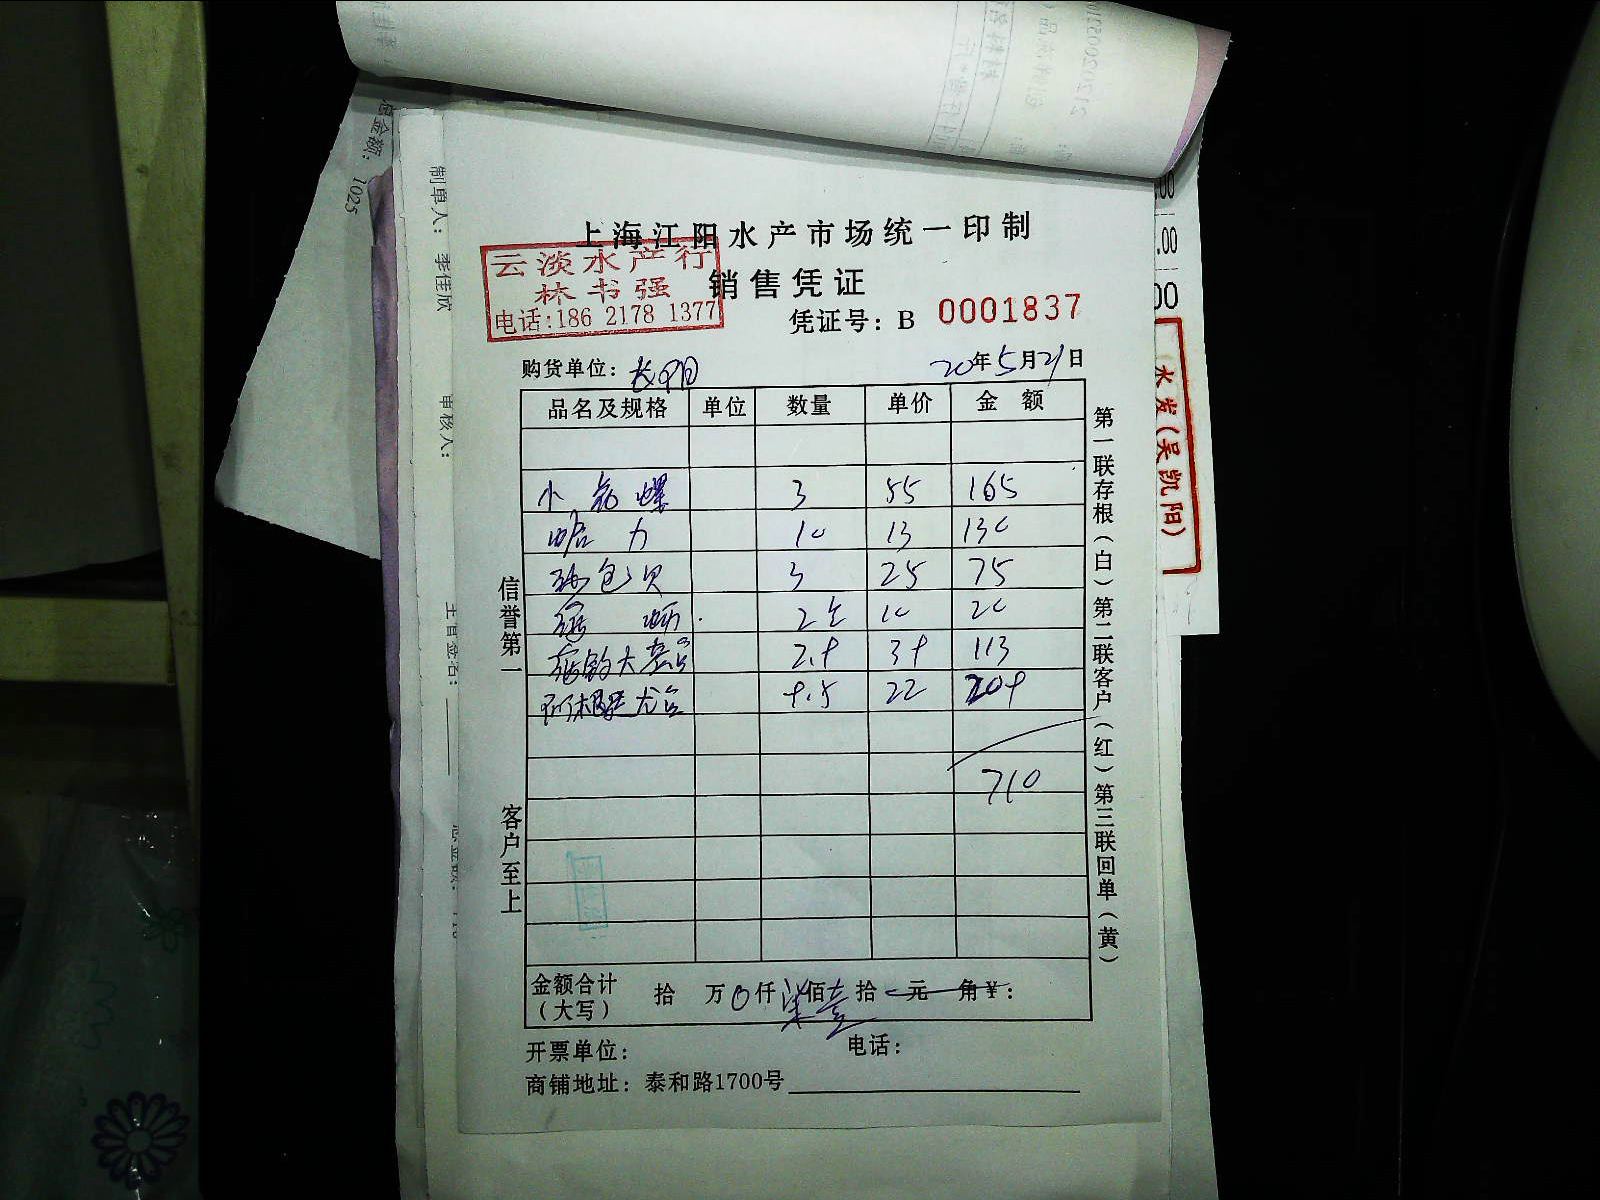 总金额： 1025
制单人： 李佳欣
审核人：
上海江阳水产市场统一印制
云淡水产行
林书强
电话:186 2178 1377
销售凭证
凭证号：B 0001837
购货单位：长阳
20年5月21日
品名及规格 单位 数量 单价 金额
小 螺 3 55 165
哈 力 10 13 130
包贝 3 25 75
2 10 20
大 113
22 209
710
金额合计（大写） 拾 万0仟柒佰壹拾元 角¥：
开票单位： 电话：
商铺地址：泰和路1700号
信誉第一
客户至上
第一联存根（白）第二联客户（红）第三联回单（黄）
.00
00
水发（吴凯阳）